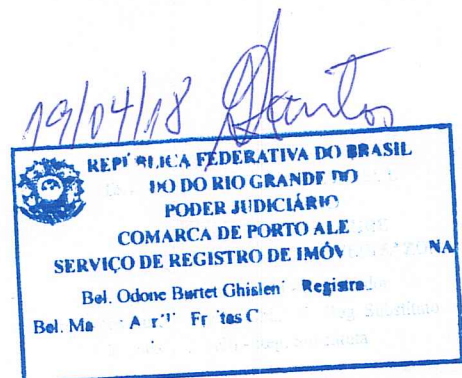 19/04/18 Santos
REPÚBLICA FEDERATIVA DO BRASIL
DO DO RIO GRANDE DO
PODER JUDICIÁRIO
COMARCA DE PORTO ALE
SERVIÇO DE REGISTRO DE IMÓV NA
Bel. Odone Burtet Ghislen Registra
Bel. Ma A Fr tas C